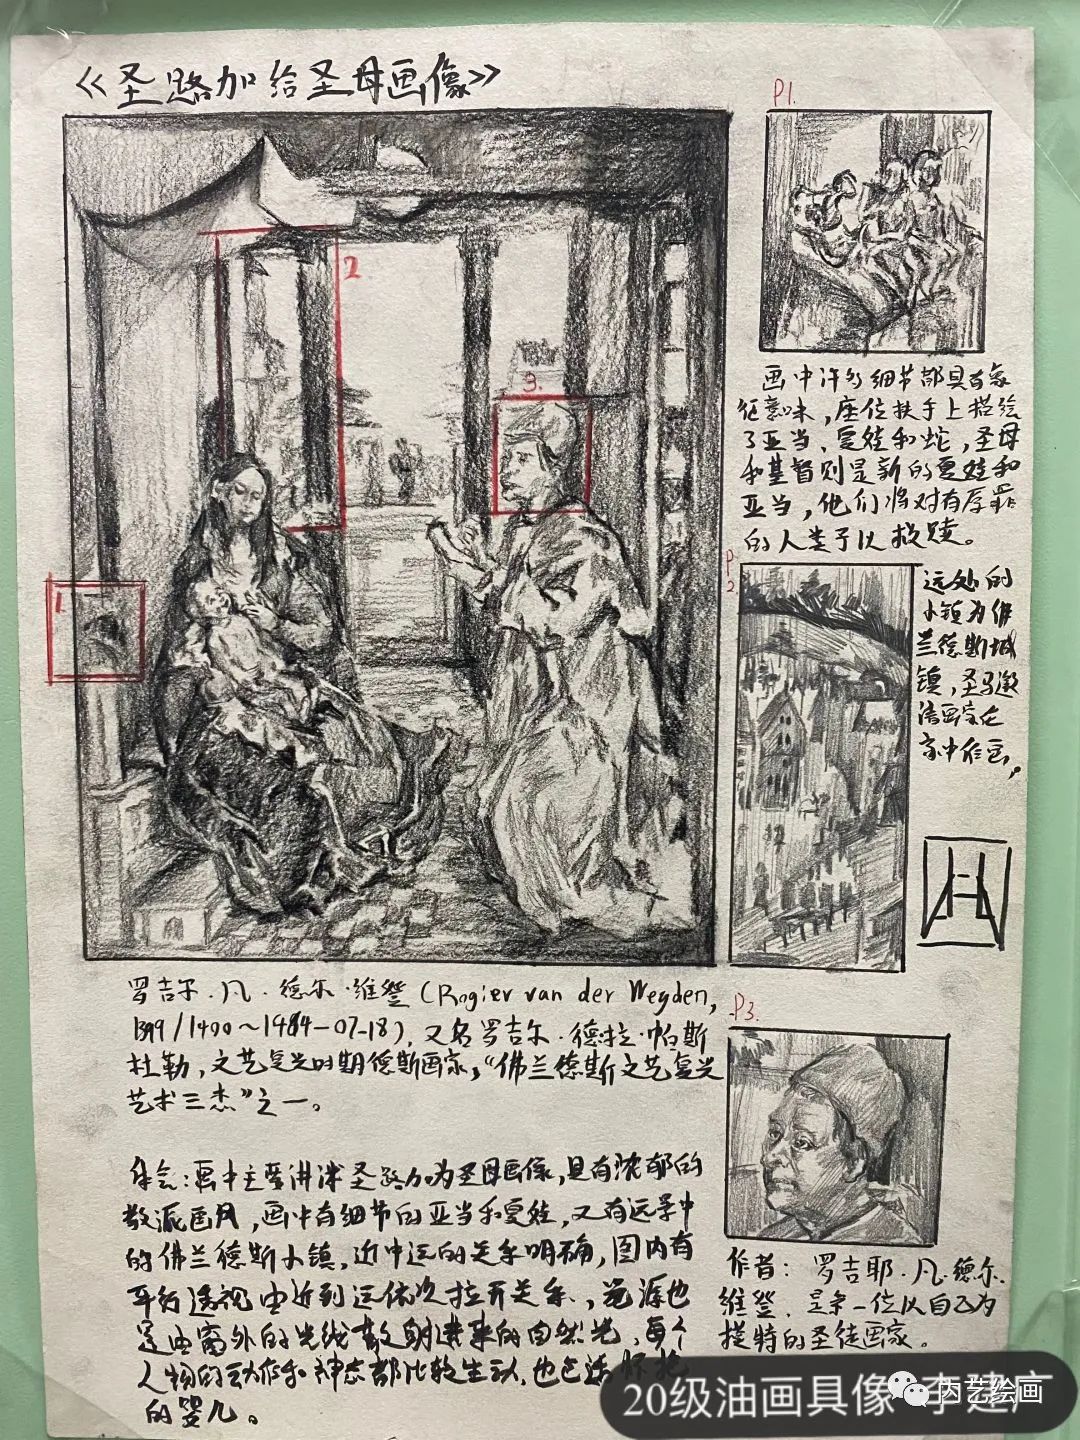 《圣路加给圣母画像》
P1.
2
3.
1.
画中许多细节都具有象
征意味,座位扶手上描绘
了亚当、夏娃和蛇,圣母
和基督则是新的夏娃和
亚当,他们将对有厚罪
的人类予以救赎。
P2
远处的
小镇为佛
兰德斯城
镇,圣马邀
请画家在
家中作画,
罗吉尔·凡·德尔·维登(Rogier van der Weyden,
1399/1400~1464-07-18),又名罗吉尔·德拉·帕斯
杜勒,文艺复兴时期德斯画家,“佛兰德斯文艺复兴
艺术三杰”之一。
P3.
体会:画中主要讲述圣路加为圣母画像,具有浓郁的
教派画风,画中有细节的亚当和夏娃,又有远景中
的佛兰德斯小镇,近中远的关系明确,图内有
平行透视由近到远依次拉开关系,光源也
是由窗外的光线散射进来的自然光,每个
人物的动作和神态都比较生动,也包括怀抱
的婴儿。
作者:罗吉耶·凡·德尔·
维登,是第一位以自己为
模特的圣徒画家。
20级油画具像 李建广
内艺绘画